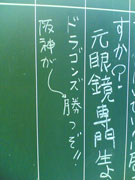 すか?
元眼鏡専門生よ
ドラゴンズ勝つぞ!!
阪神が